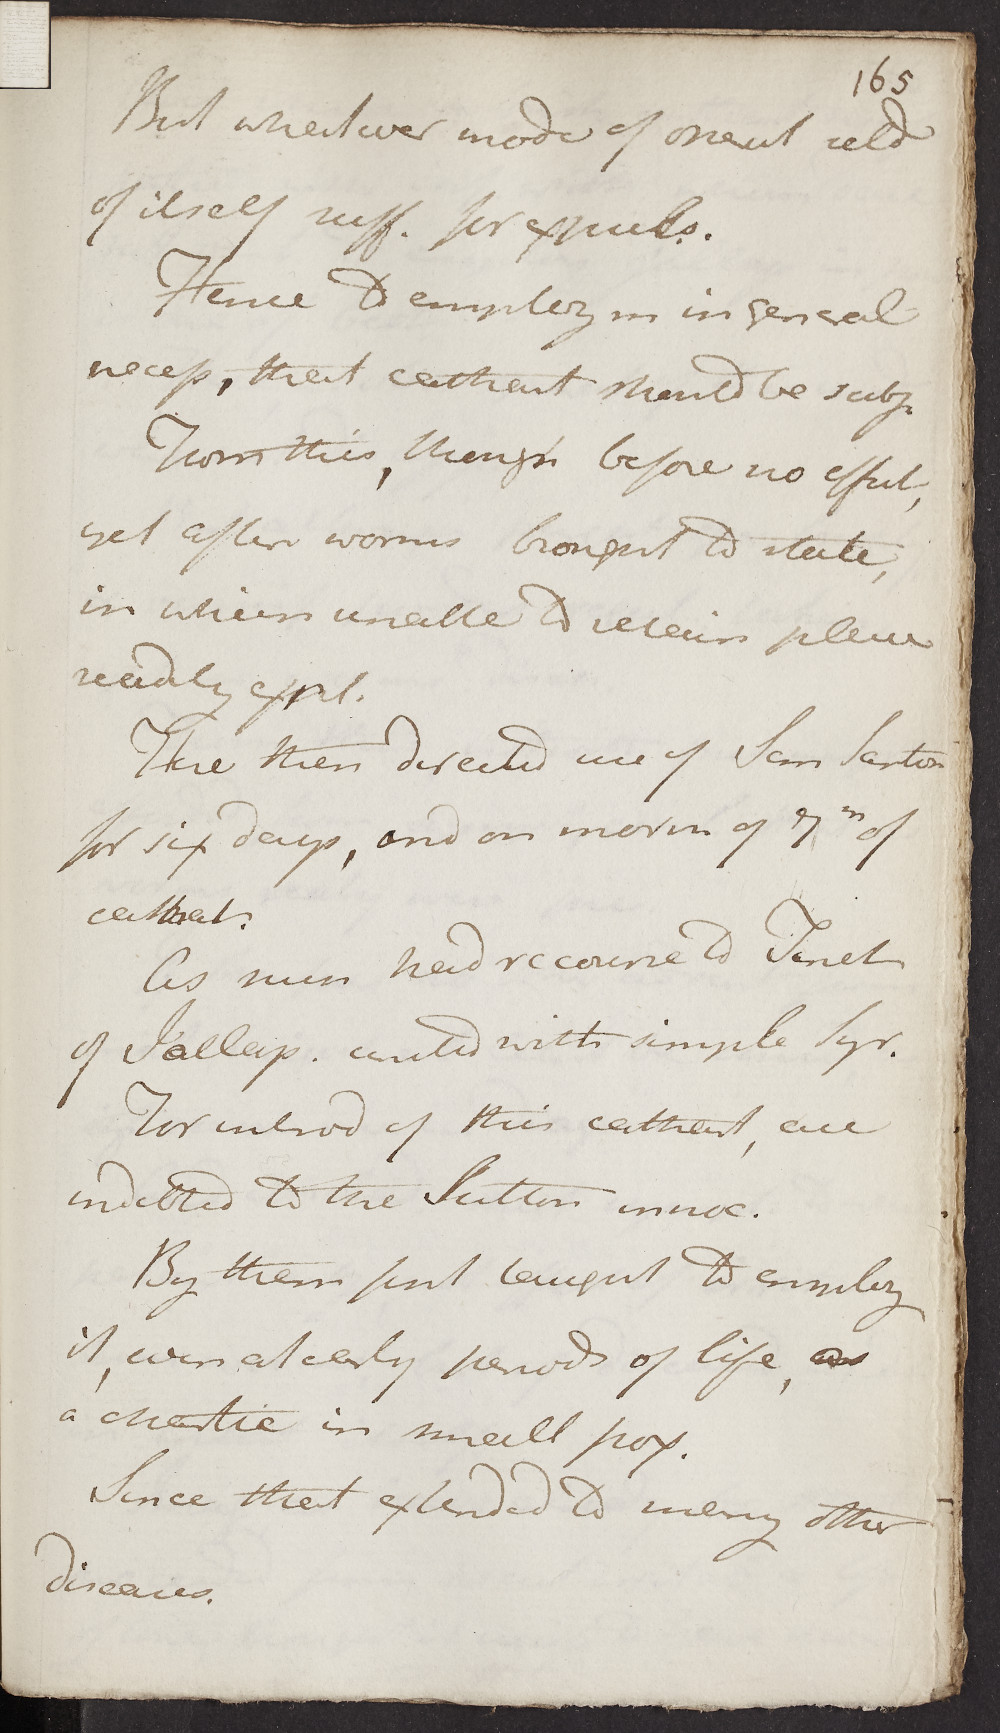 165
But whatever mode of operat seld
of itself suff. for expuls.
Hence to employm in general
necess, that cathart should be subj.
From this, though before no effect,
yet after worms brought to state,
in which unable to retain place
readily expel.
Here then directed use of Sem Santon
for six days, and on morn of 7th of
cathart.
As such had recourse to Tinct
of Jallap. united with simple Syr.
For introd of this cathart, are
indebted to the Sutton innoc.
By them first taught to employ
it, even at early periods of life, as
a cathartic in small pox.
Since that extended to many other
diseases.